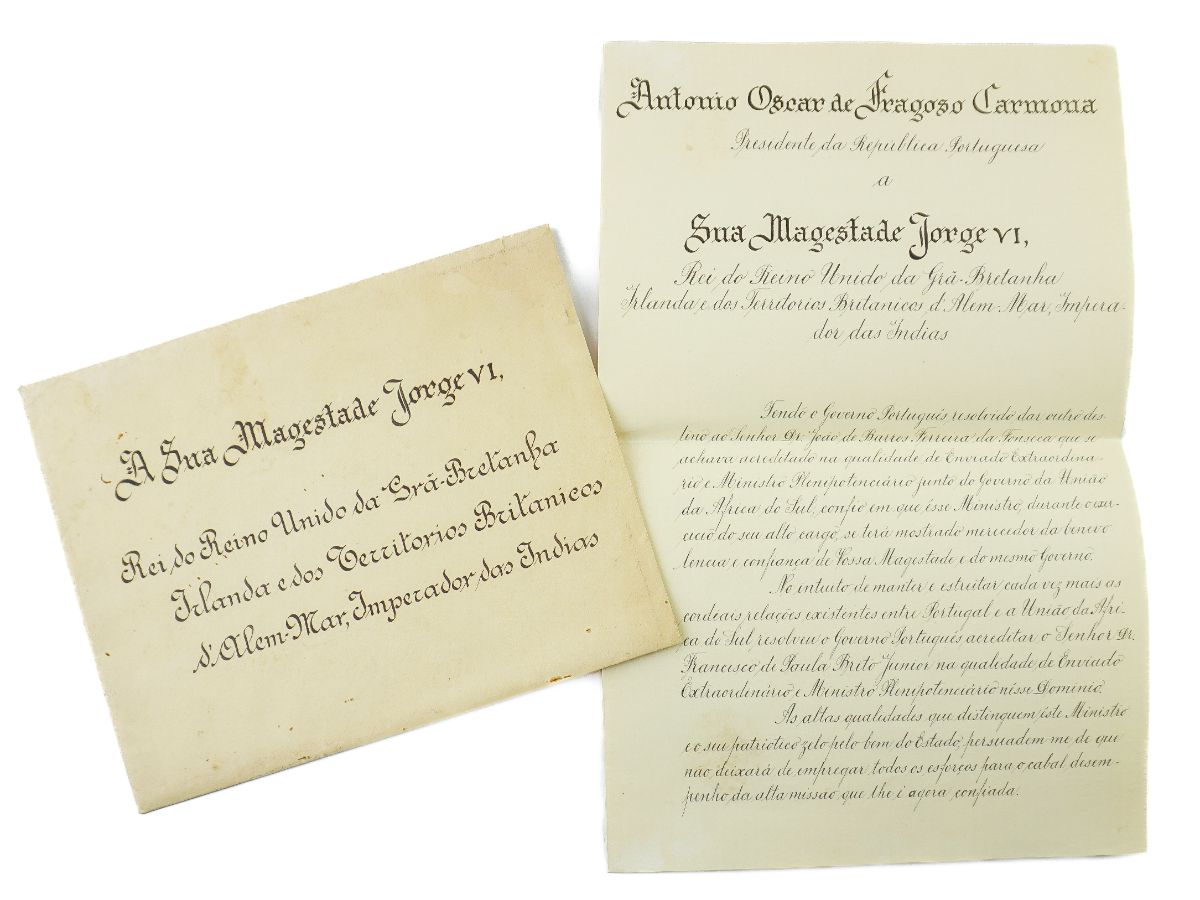 A Sua Magestade Jorge VI,
Rei do Reino Unido da Grã-Bretanha
Irlanda e dos Territorios Britanicos
d'Alem-Mar, Imperador das Indias
Antonio Oscar de Fragoso Carmona
Presidente da Republica Portuguesa
a
Sua Magestade Jorge VI,
Rei do Reino Unido da Grã-Bretanha
Irlanda e dos Territorios Britanicos d'Alem-Mar, Impera-
dor das Indias
Tendo o Governo Português resolvido dar outro des-
tino ao Senhor Dr. João de Barros Ferreira da Fonseca que se
achava acreditado na qualidade de Enviado Extraordina-
rio e Ministro Plenipotenciário junto do Governo da União
da Africa do Sul, confio em que êsse Ministro, durante o exer-
cicio do seu alto cargo, se terá mostrado merecedor da benevo-
lencia e confiança de Vossa Magestade e do mesmo Governo.
No intuito de manter e estreitar cada vez mais as
cordeais relações existentes entre Portugal e a União da Afri-
ca do Sul, resolveu o Governo Português acreditar o Senhor Dr.
Francisco de Paula Brito Junior na qualidade de Enviado
Extraordinário e Ministro Plenipotenciário nêsse Dominio.
As altas qualidades que distinguem êste Ministro
e o seu patriotico zelo pelo bem do Estado, persuadem-me de que
não deixará de empregar todos os esforços para o cabal desem-
penho da alta missão que lhe é agora confiada.